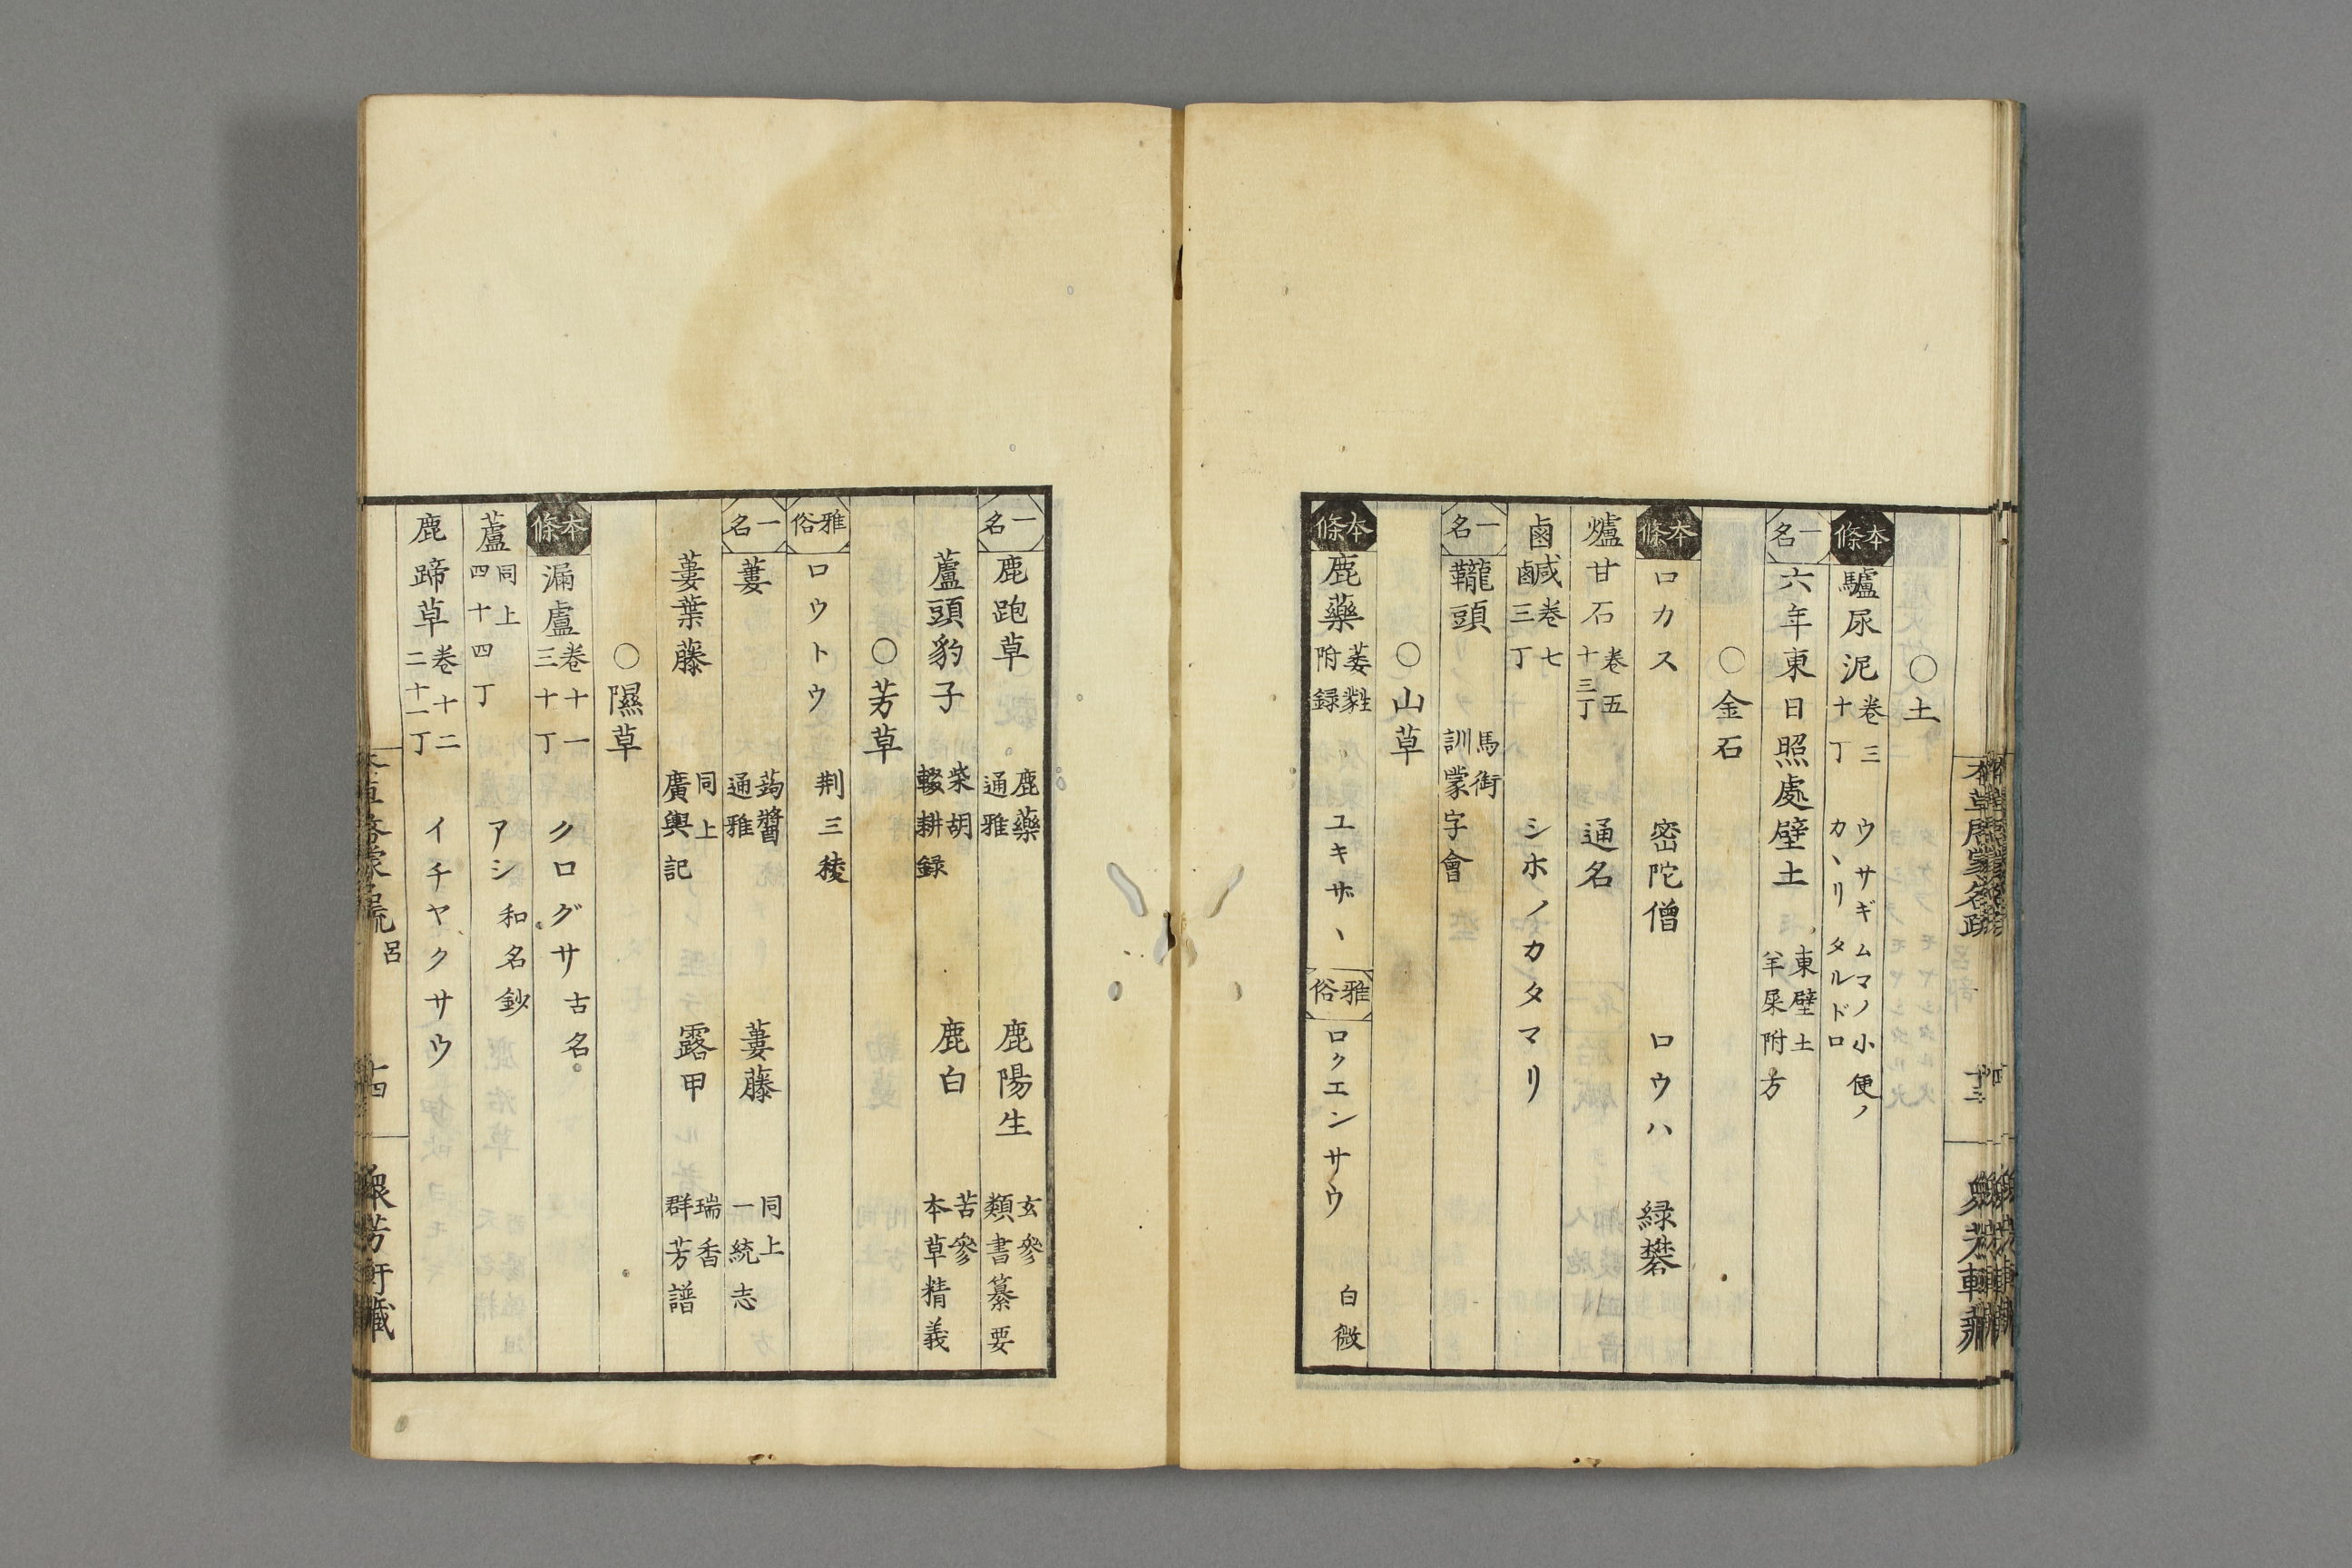 ○土
本條 驢尿泥 卷三十丁 ウサギムマノ小便ノカヽリタルドロ
一名 六年東日照處壁土 東壁土羊屎附方
○金石
本條 ロカス 密陀僧 ロウハ 緑礬
爐甘石 卷五十三丁 通名
鹵鹹 卷七三丁 シホノカタマリ
一名 鞴頭 馬銜訓蒙字會
○山草
本條 鹿藥 萎蕤附録 ユキザヽ 雅俗 ロクエンサウ 白微
一名 鹿跑草 鹿藥通雅 鹿陽生 玄參類書纂要
蘆頭豹子 柴胡輟耕録 鹿白 苦參本草精義
○芳草
雅俗 ロウトウ 荆三稜
一名 蔞 蒟醬通雅 蔞藤 同上一統志
蔞葉藤 同上廣輿記 露甲 瑞香群芳譜
○隰草
本條 漏盧 卷十一三十丁 クログサ 古名
蘆 同上四十四丁 アシ 和名鈔
鹿蹄草 卷十二二十一丁 イチヤクサウ
本草啓蒙名疏 呂 十四 衆芳軒藏